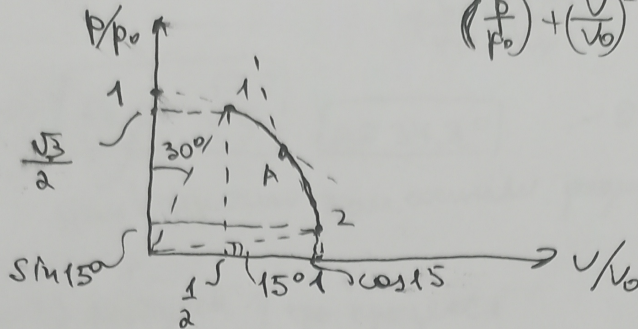 p/p₀
(p/p₀) + (V/V₀)
1
1
√3/2
30°
A
2
sin15°
1/2
15°
1
cos15
V/V₀